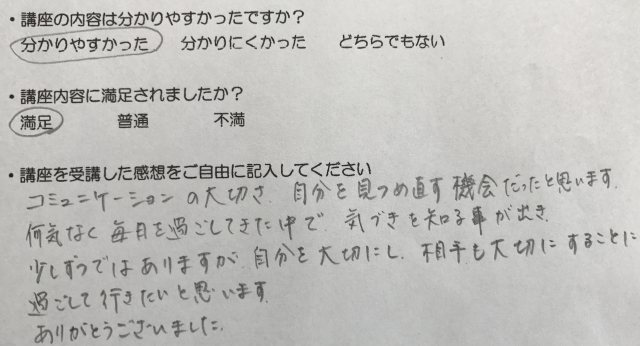 ・講座の内容は分かりやすかったですか?
分かりやすかった 分かりにくかった どちらでもない
・講座内容に満足されましたか?
満足 普通 不満
・講座を受講した感想をご自由に記入してください
コミュニケーションの大切さ、自分を見つめ直す機会だったと思います。
何気なく毎日を過ごしてきた中で、気づきを知る事が出き、
少しずつではありますが、自分を大切にし、相手も大切にすることに
過ごして行きたいと思います。
ありがとうございました。